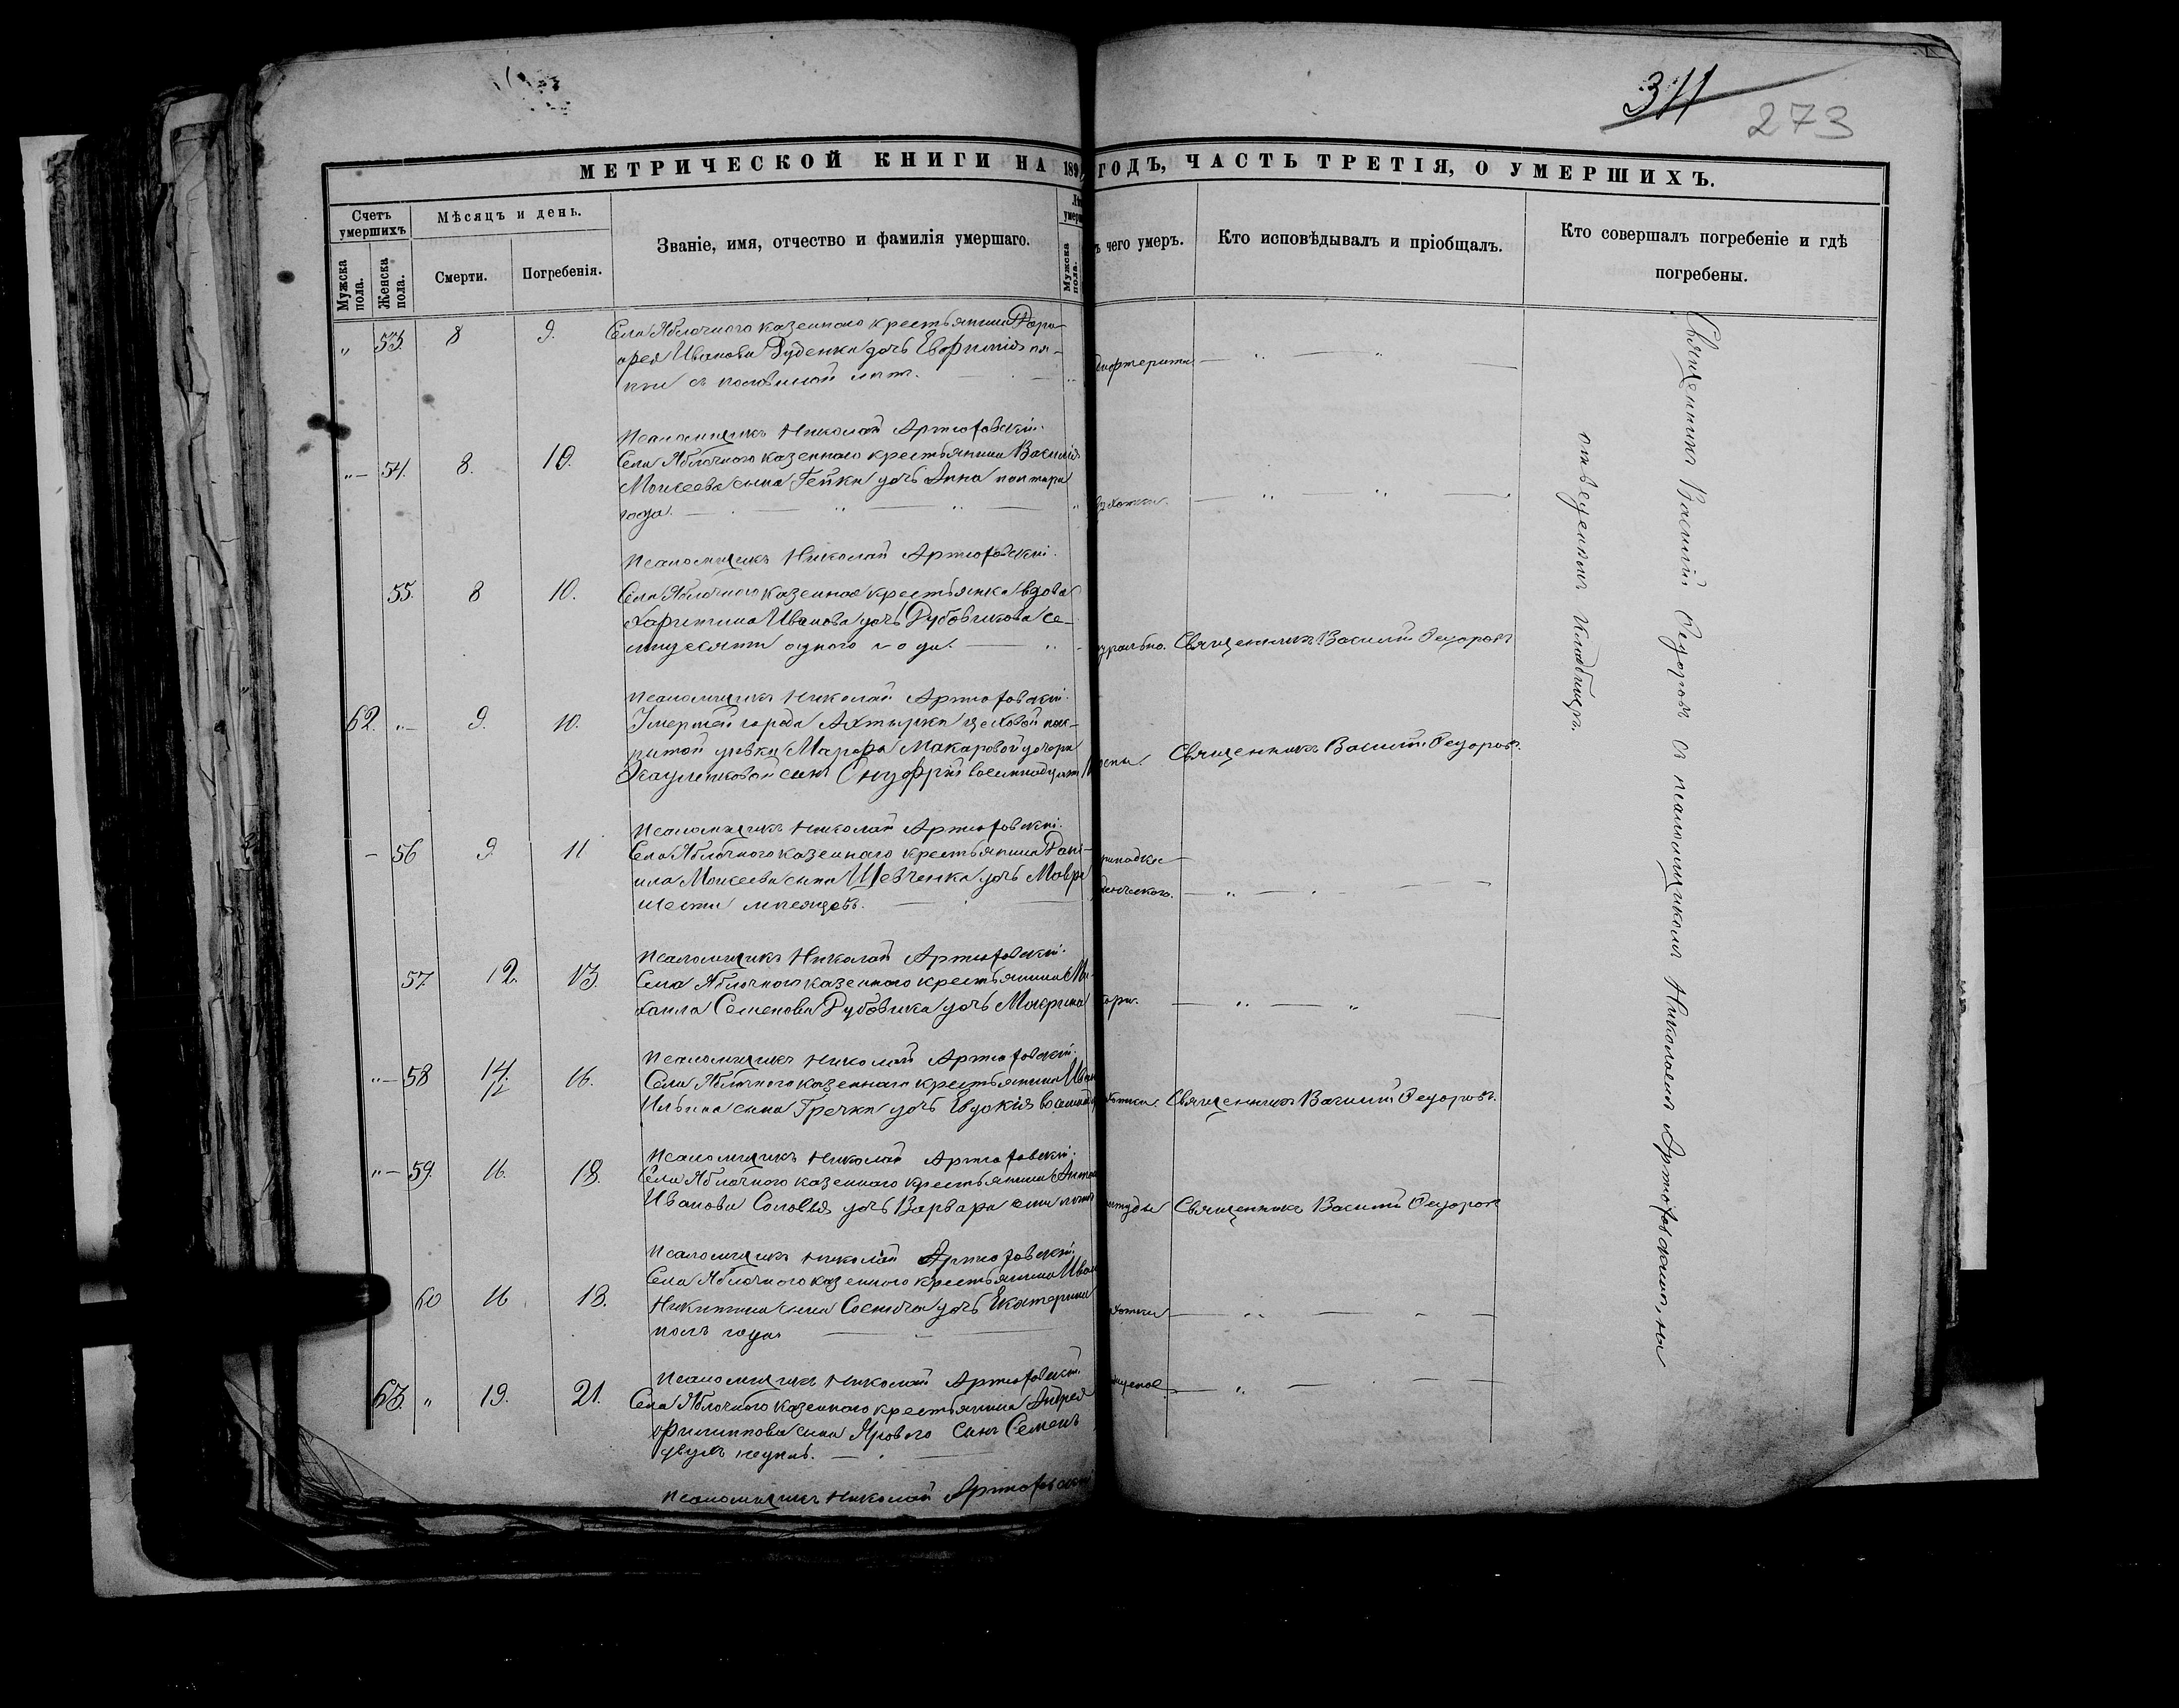 311
273
МЕТРИЧЕСКОЙ КНИГИ НА 189 ГОДЪ, ЧАСТЬ ТРЕТІЯ, О УМЕРШИХЪ.
Счетъ умершихъ
Мѣсяцъ и день.
Званіе, имя, отчество и фамилія умершаго.
ъ чего умеръ.
Кто исповѣдывалъ и пріобщалъ.
Кто совершалъ погребеніе и гдѣ
погребены.
Мужска пола.
Женска пола.
Смерти.
Погребенія.
Мужска пола.
" 53. 8 9. Села Яблочного казенного крестьянина
Иванова Руденка дочь Евфимія пя-
ти съ половиной лѣтъ.
дифтерита
Псаломщикъ Николай Артюховскій.
"— 54. 8. 10. Села Яблочного казенного крестьянина Василія
Моисеева сына Гейка дочь Анна полтора
года.
Псаломщикъ Николай Артюховскій.
55. 8 10. Села Яблочного казенная крестьянка вдова
Харитина Иванова дочь Рубовикова се-
мидесяти одного года.
Священникъ Василій Ѳедоровъ
Псаломщикъ Николай Артюховскій.
62. "— 9. 10. Умершей города Ахтырки цеховой пок-
рытой дѣвки Марфы Макаровой дочери
сынъ Онуфрій
Священникъ Василій Ѳедоровъ.
Псаломщикъ Николай Артюховскій.
— 56 9 11 Села Яблочного казеннаго крестьянина Дани-
ила Моисеева сына Шевченка дочь Мавра
шести мѣсяцовъ.
Псаломщикъ Николай Артюховскій.
57 12. 13. Села Яблочного казенного крестьянина Ми-
хаила Семенова Рубовика дочь Макрина
Псаломщикъ Николай Артюховскій.
"— 58 14. 12 16. Села Яблочного казеннаго крестьянина Иван
Ильина сына Гречки дочь Евдокія
Священникъ Василій Ѳедоровъ.
Псаломщикъ Николай Артюховскій.
"— 59. 16. 18. Села Яблочного казенного крестьянина
Иванова Соловья дочь Варвара
Священникъ Василій Ѳедоровъ
Псаломщикъ Николай Артюховскій.
60 16 18. Села Яблочного казенного крестьянина Иван
Никитина сына дочь Екатерина
полъ года
Псаломщикъ Николай Артюховскій.
63. " 19. 21. Села Яблочного казенного крестьянина Андрея
Филиппова сына Ярового сынъ Семенъ
двухъ недѣль.
Псаломщикъ Николай Артюховскій
Священникъ Василій Ѳедоровъ съ псаломщикомъ Николаемъ Артюховскимъ, на
отведенномъ кладбищѣ.